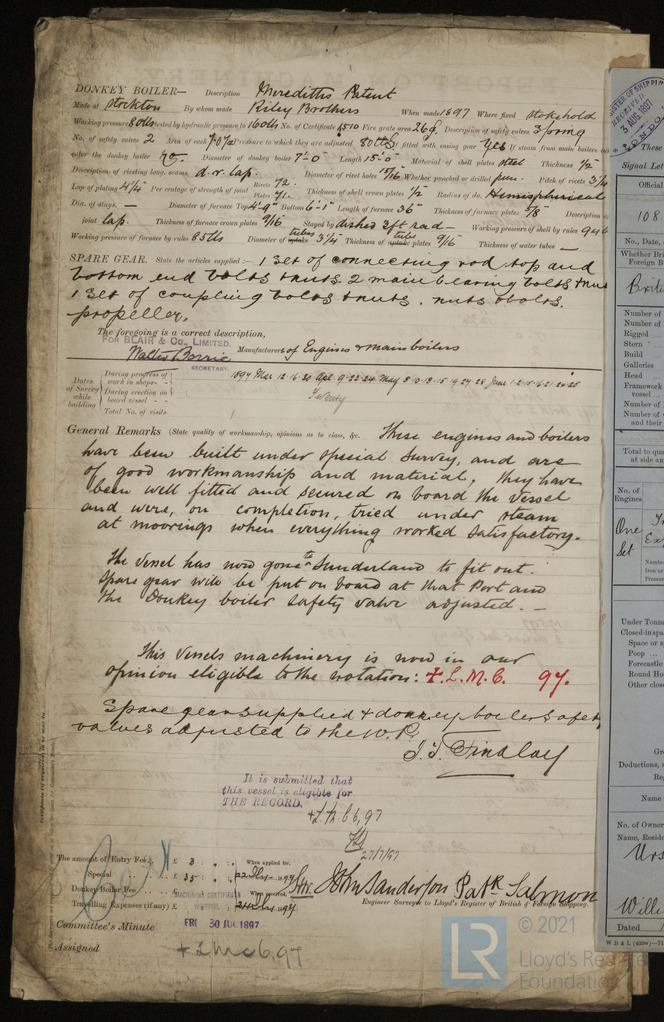 DONKEY BOILER— Description Merediths Patent
Made at Stockton By whom made Riley Brothers When made 1897 Where fixed stokehold
Working pressure 80lbs tested by hydraulic pressure to 160lbs No. of Certificate 4510 Fire grate area 26 Description of safety valves Spring
No. of safety valves 2 Area of each Pressure to which they are adjusted 80lbs If fitted with easing gear Yes If steam from main boilers can
enter the donkey boiler No. Diameter of donkey boiler 7'-0" Length 15'-0" Material of shell plates steel Thickness 1/2
Description of riveting long. seams d.r. lap. Diameter of rivet holes 13/16 Whether punched or drilled pun. Pitch of rivets 3 1/4
Lap of plating 4 1/4 Per centage of strength of joint Rivets 72. Plates 71. Thickness of shell crown plates 1/2 Radius of do. Hemispherical
Dia. of stays. — Diameter of furnace Top 4'-9" Bottom 6'-1" Length of furnace 36" Thickness of furnace plates 5/8 Description of
joint lap. Thickness of furnace crown plates 9/16 Stayed by dished 2ft rad — Working pressure of shell by rules 94 lb
Working pressure of furnace by rules 85lbs Diameter of uptake tubes 3 1/4 Thickness of uptake tube 9/16 Thickness of water tubes —
SPARE GEAR. State the articles supplied:— 1 Set of connecting rod top and
bottom end bolts & nuts 2 main bearing bolts & nuts
1 set of coupling bolts & nuts. nuts & bolts.
propeller.
The foregoing is a correct description,
FOR BLAIR & Co., LIMITED.
Walter Borrie Manufacturers of Engines & main boilers
SECRETARY.
Dates of Survey while building
During progress of work in shops - - 1897 Mar 12.16.30 Apl 9.22.24 May 8.10.13.15.19.24.28 June 1.2.
During erection on board vessel - - -
Total No. of visits Twenty
General Remarks (State quality of workmanship, opinions as to class, &c. These engines and boilers
have been built under special survey, and are
of good workmanship and material, they have
been well fitted and secured on board the vessel
and were, on completion, tried under steam
at moorings when everything worked satisfactory.
The vessel has now gone to Sunderland to fit out.
Spare gear will be put on board at that Port and
the Donkey boiler safety valve adjusted. —
This vessels machinery is now in our
opinion eligible to the notation: + L.M.C. 97.
Spare gear supplied & donkey boiler safety
valves adjusted to the W.P.
J. T. Findlay
It is submitted that
this vessel is eligible for
THE RECORD.
+LMC 6,97
27/7/97
The amount of Entry Fee. . £ 3 : : When applied for,
Special . . . £ 35 : :
Donkey Boiler Fee . . . £ : : When received,
Travelling Expenses (if any) £ : :
MACHINERY CERTIFICATE
WRITTEN
John Sanderson Patk Salmon
Engineer Surveyor to Lloyd's Register of British & Foreign Shipping.
Committee's Minute FRI 30 JUL 1897
Assigned + LMC 6,97
REGISTER OF SHIPPING
RECEIVED
3 AUG. 1897
LONDON
These
Signal Let
Official
108
No., Date,
Whether Bri
Foreign B
Briti
Number of
Number of
Rigged
Stern
Build
Galleries
Head
Framework
vessel
Number of
Number of
and their
Total to qu
at side an
No. of
Engines
One
Set
Under Tonn
Closed-in spa
Space or s
Poop
Forecastle
Round Ho
Other clos
Gro
Deductions,
Re
Name
No. of Owner
Name, Reside
Willi
Dated
LR
© 2021
Lloyd's Register
Foundation